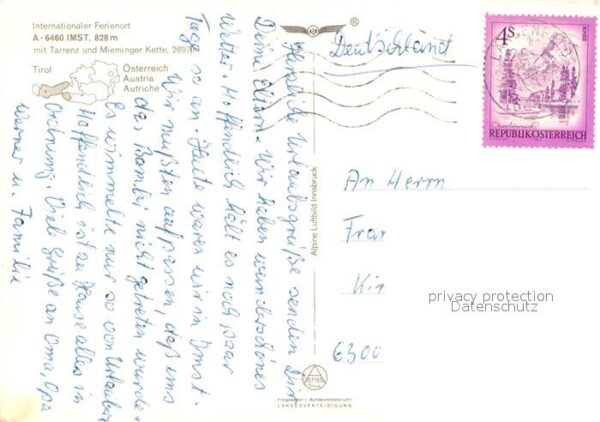 Internationaler Ferienort
A - 6460 IMST, 828 m
mit Tarrenz und Mieminger Kette, 2697
Tirol
Österreich
Austria
Autriche
Herzliche Urlaubsgrüße senden Dir
Deine Eltern. Wir haben wunderschönes
Wetter. Hoffentlich hält es noch paar
Tage so an. Heute waren wir in Imst.
Wir mußten aufpassen, daß uns
das nicht getreten wurde.
Es wimmelte nur so von Urlauber
Hoffentlich ist zu Hause alles in
Ordnung. Viel Grüße an Oma, Opa
Werner u. Familie
Alpine Luftbild Innsbruck
ALPINE
Freigegeben v. Bundesministerium f.
LANDESVERTEIDIGUNG
Deutschland
4S
REPUBLIK ÖSTERREICH
An Herrn
Fra
Kir
6300
privacy protection
Datenschutz